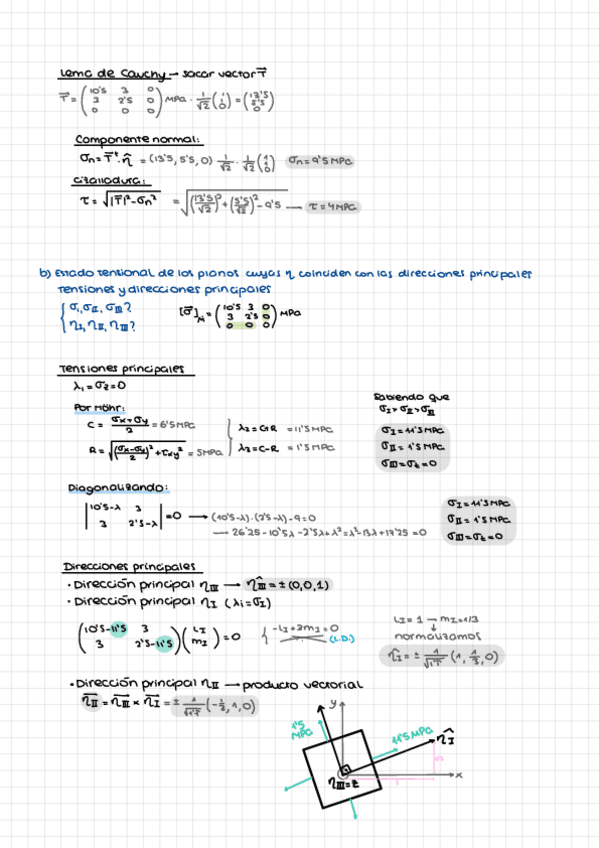 Lema de Cauchy → sacar vector T⃗
T⃗ = (10'5 3 0 / 3 2'5 0 / 0 0 0) MPa · 1/√2 (1 / 1 / 0) = (13'5 / 5'5 / 0)
Componente normal:
σn = T⃗ᵗ · n̂ = (13'5, 5'5, 0) 1/√2 · 1/√2 (1 / 1 / 0) σn = 9'5 MPa
Cizalladura:
τ = √(|T⃗|² - σn²) = √((13'5/√2)² + (5'5/√2)² - 9'5) → τ = 4 MPa
b) Estado tensional de los planos cuyas η coinciden con las direcciones principales
Tensiones y direcciones principales
{ σI, σII, σIII?
ηI, ηII, ηIII?
[σ⃗] = (10'5 3 0 / 3 2'5 0 / 0 0 0) MPa
Tensiones principales
λ1 = σz = 0
Por Mohr:
C = (σx + σy)/2 = 6'5 MPa
R = √((σx - σy)/2)² + τxy² = 5 MPa
λ2 = C+R = 11'5 MPa
λ3 = C-R = 1'5 MPa
Sabiendo que
σI > σII > σIII
σI = 11'5 MPa
σII = 1'5 MPa
σIII = σz = 0
Diagonalizando:
|10'5-λ 3 / 3 2'5-λ| = 0 → (10'5-λ)·(2'5-λ)-9=0
→ 26'25-10'5λ-2'5λ+λ²=λ²-13λ+17'25=0
σI = 11'5 MPa
σII = 1'5 MPa
σIII = σz = 0
Direcciones principales
· Dirección principal ηIII → η̂III = ± (0,0,1)
· Dirección principal ηI (λi = σI)
(10'5-11'5 3 / 3 2'5-11'5) (LI / mI) = 0 { -LI+3mI=0 (L.D.)
LI = 1 → mI = 1/3
normalizamos
η̂I = ± (1, 1/3, 0)
· Dirección principal ηII → producto vectorial
η⃗II = η⃗III × η⃗I = ± (-1/3, 1, 0)
y
1'5 MPa
11'5 MPa
η̂I
ηIII = z
x
1